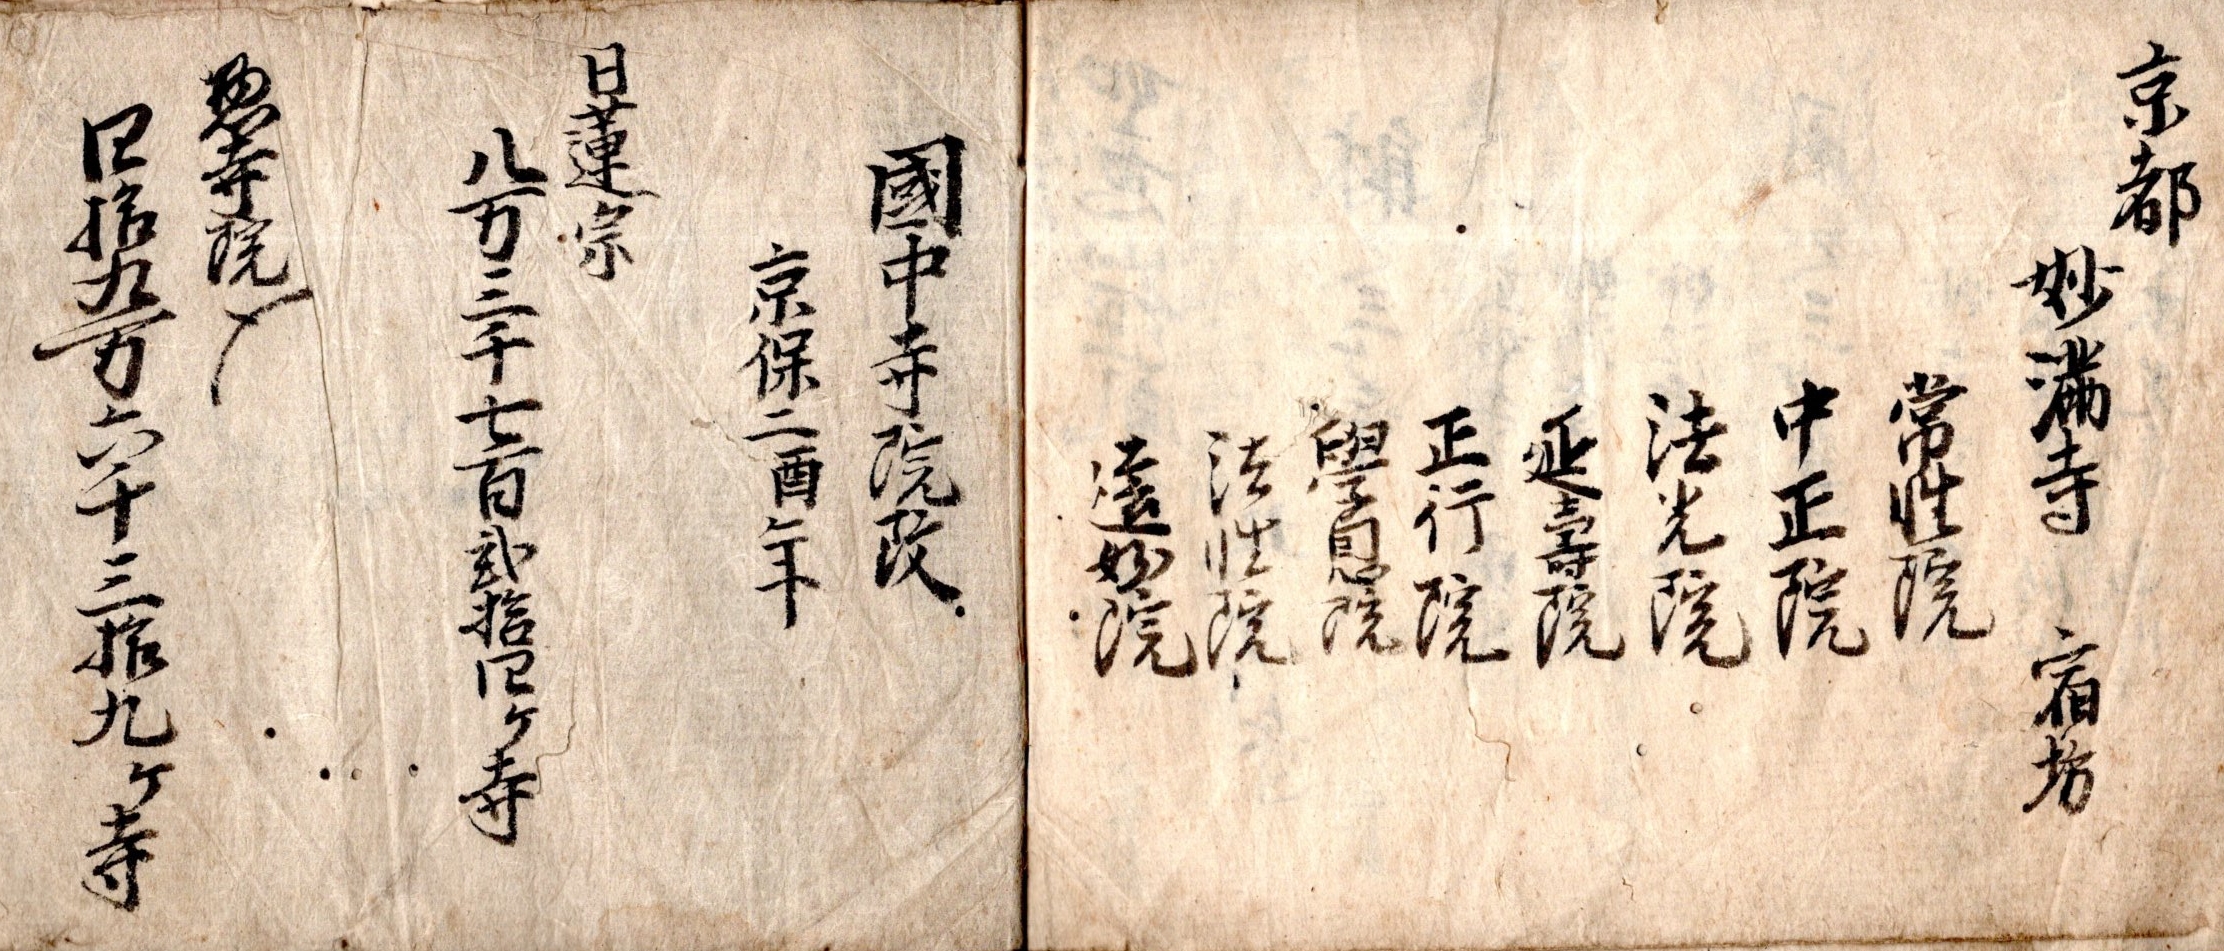 京都
妙満寺 宿坊
常性院
中正院
法光院
延壽院
正行院
學 院
法性院
遠妙院
國中寺院改
京保二酉年
日蓮宗
八万三千七百弐拾四ヶ寺
惣寺院〆
四拾九万六千三拾九ヶ寺